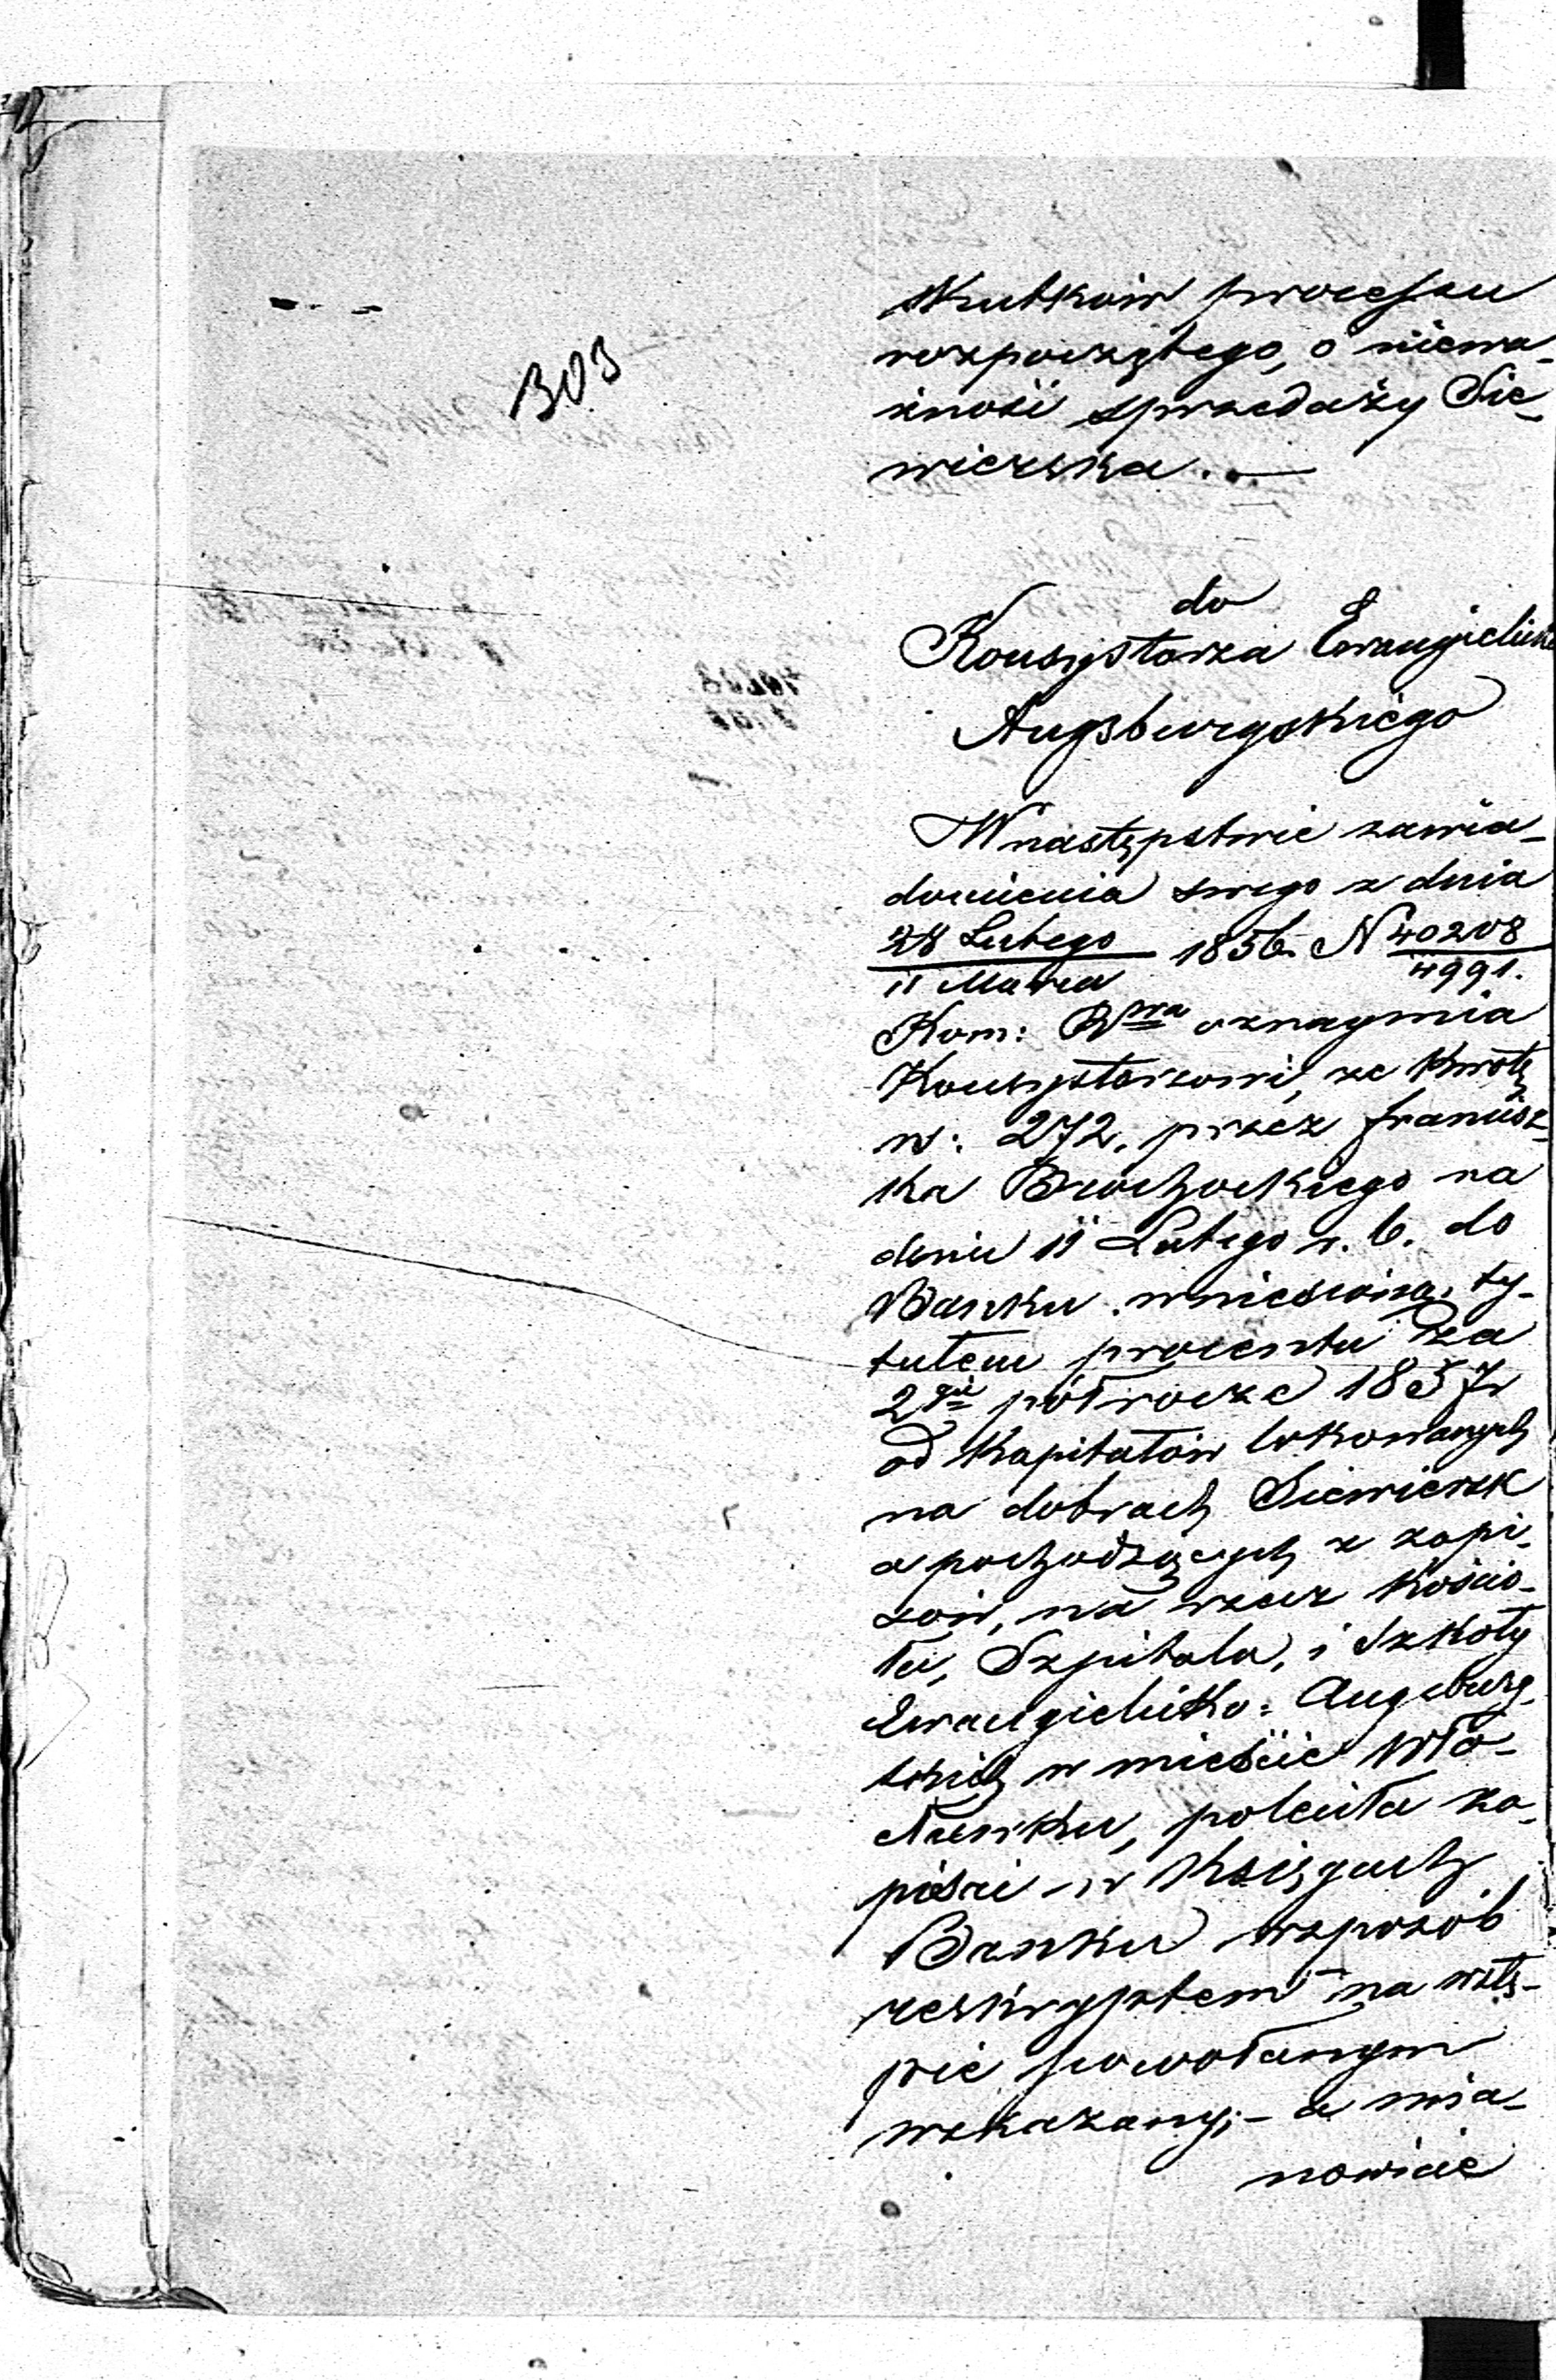 303
skutków processu
rozpoczętego, o niewa-
żność sprzedaży Sie-
wierska. —
do
Konsystorza Ewangielicko
Augsburgskiego
W następstwie zawia-
domienia swego z dnia
28 Lutego / 11 Marca 1856 N 40208 / 4991.
Kom: Rząa oznaymia
Konsystorzowi, że kwotę
rs: 272. przez Francisz-
ka Brochockiego na
dniu 11 Lutego r. b. do
Banku wniesioną, ty-
tułem procentu za
2gie półrocze 1857 r
od kapitałów lokowanych
na dobrach Siewiersk
a pochodzących z zapi-
sów, na rzecz Kościo-
ła, Szpitala, i Szkoły
Ewangielicko-Augsburg-
skich w mieście Wło-
cławku, poleciła za-
pisać w Księgach
Banku w sposób
reskryptem na wstę-
pie powołanym
wskazany; - a mia-
nowicie